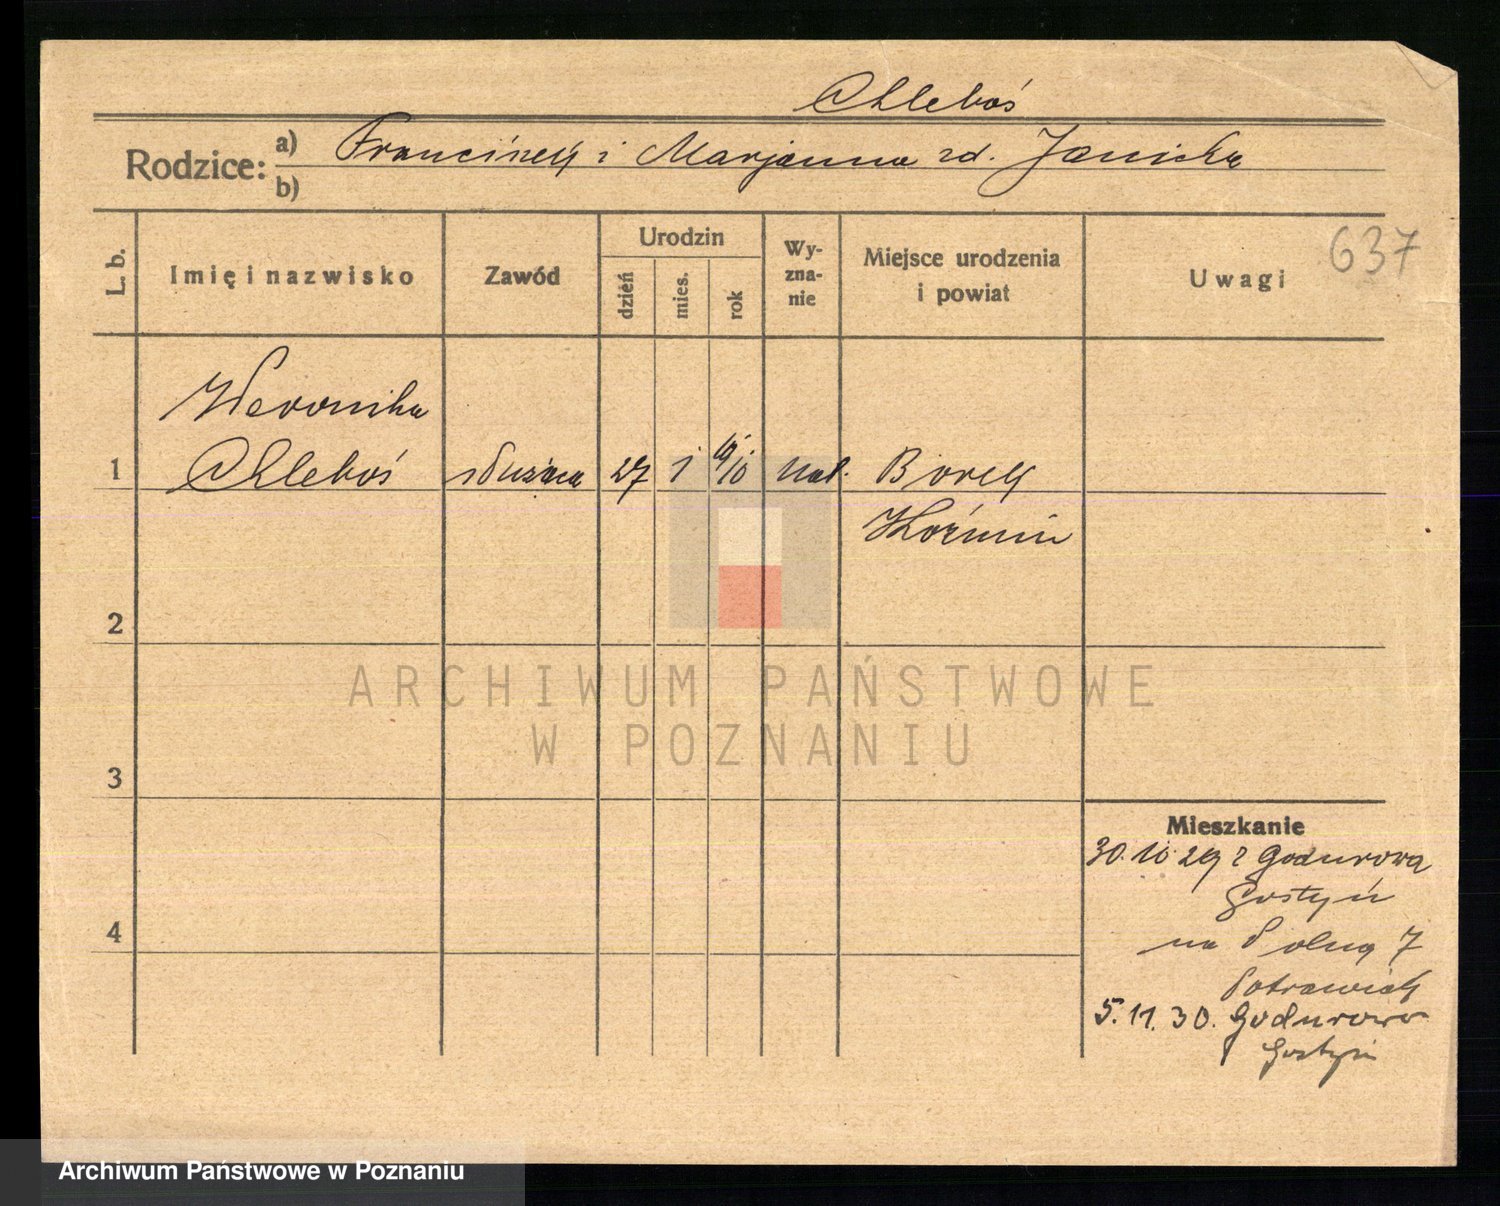 Chleboś
Rodzice: a) Franciszek i Marjanna zd. Janicka
b)
L. b.
Imię i nazwisko
Zawód
Urodzin
dzień
mies.
rok
Wy-
zna-
nie
Miejsce urodzenia
i powiat
Uwagi
637
Weronika
1 Chleboś służąca 27 1 19/10 kat. Borek
Koźmin
2
ARCHIWUM PAŃSTWOWE
W POZNANIU
3
4
Mieszkanie
30.10.29 z Godurowa
Gostyń
na Polną 7
5.11.30. Godurowo
Gostyń
Archiwum Państwowe w Poznaniu